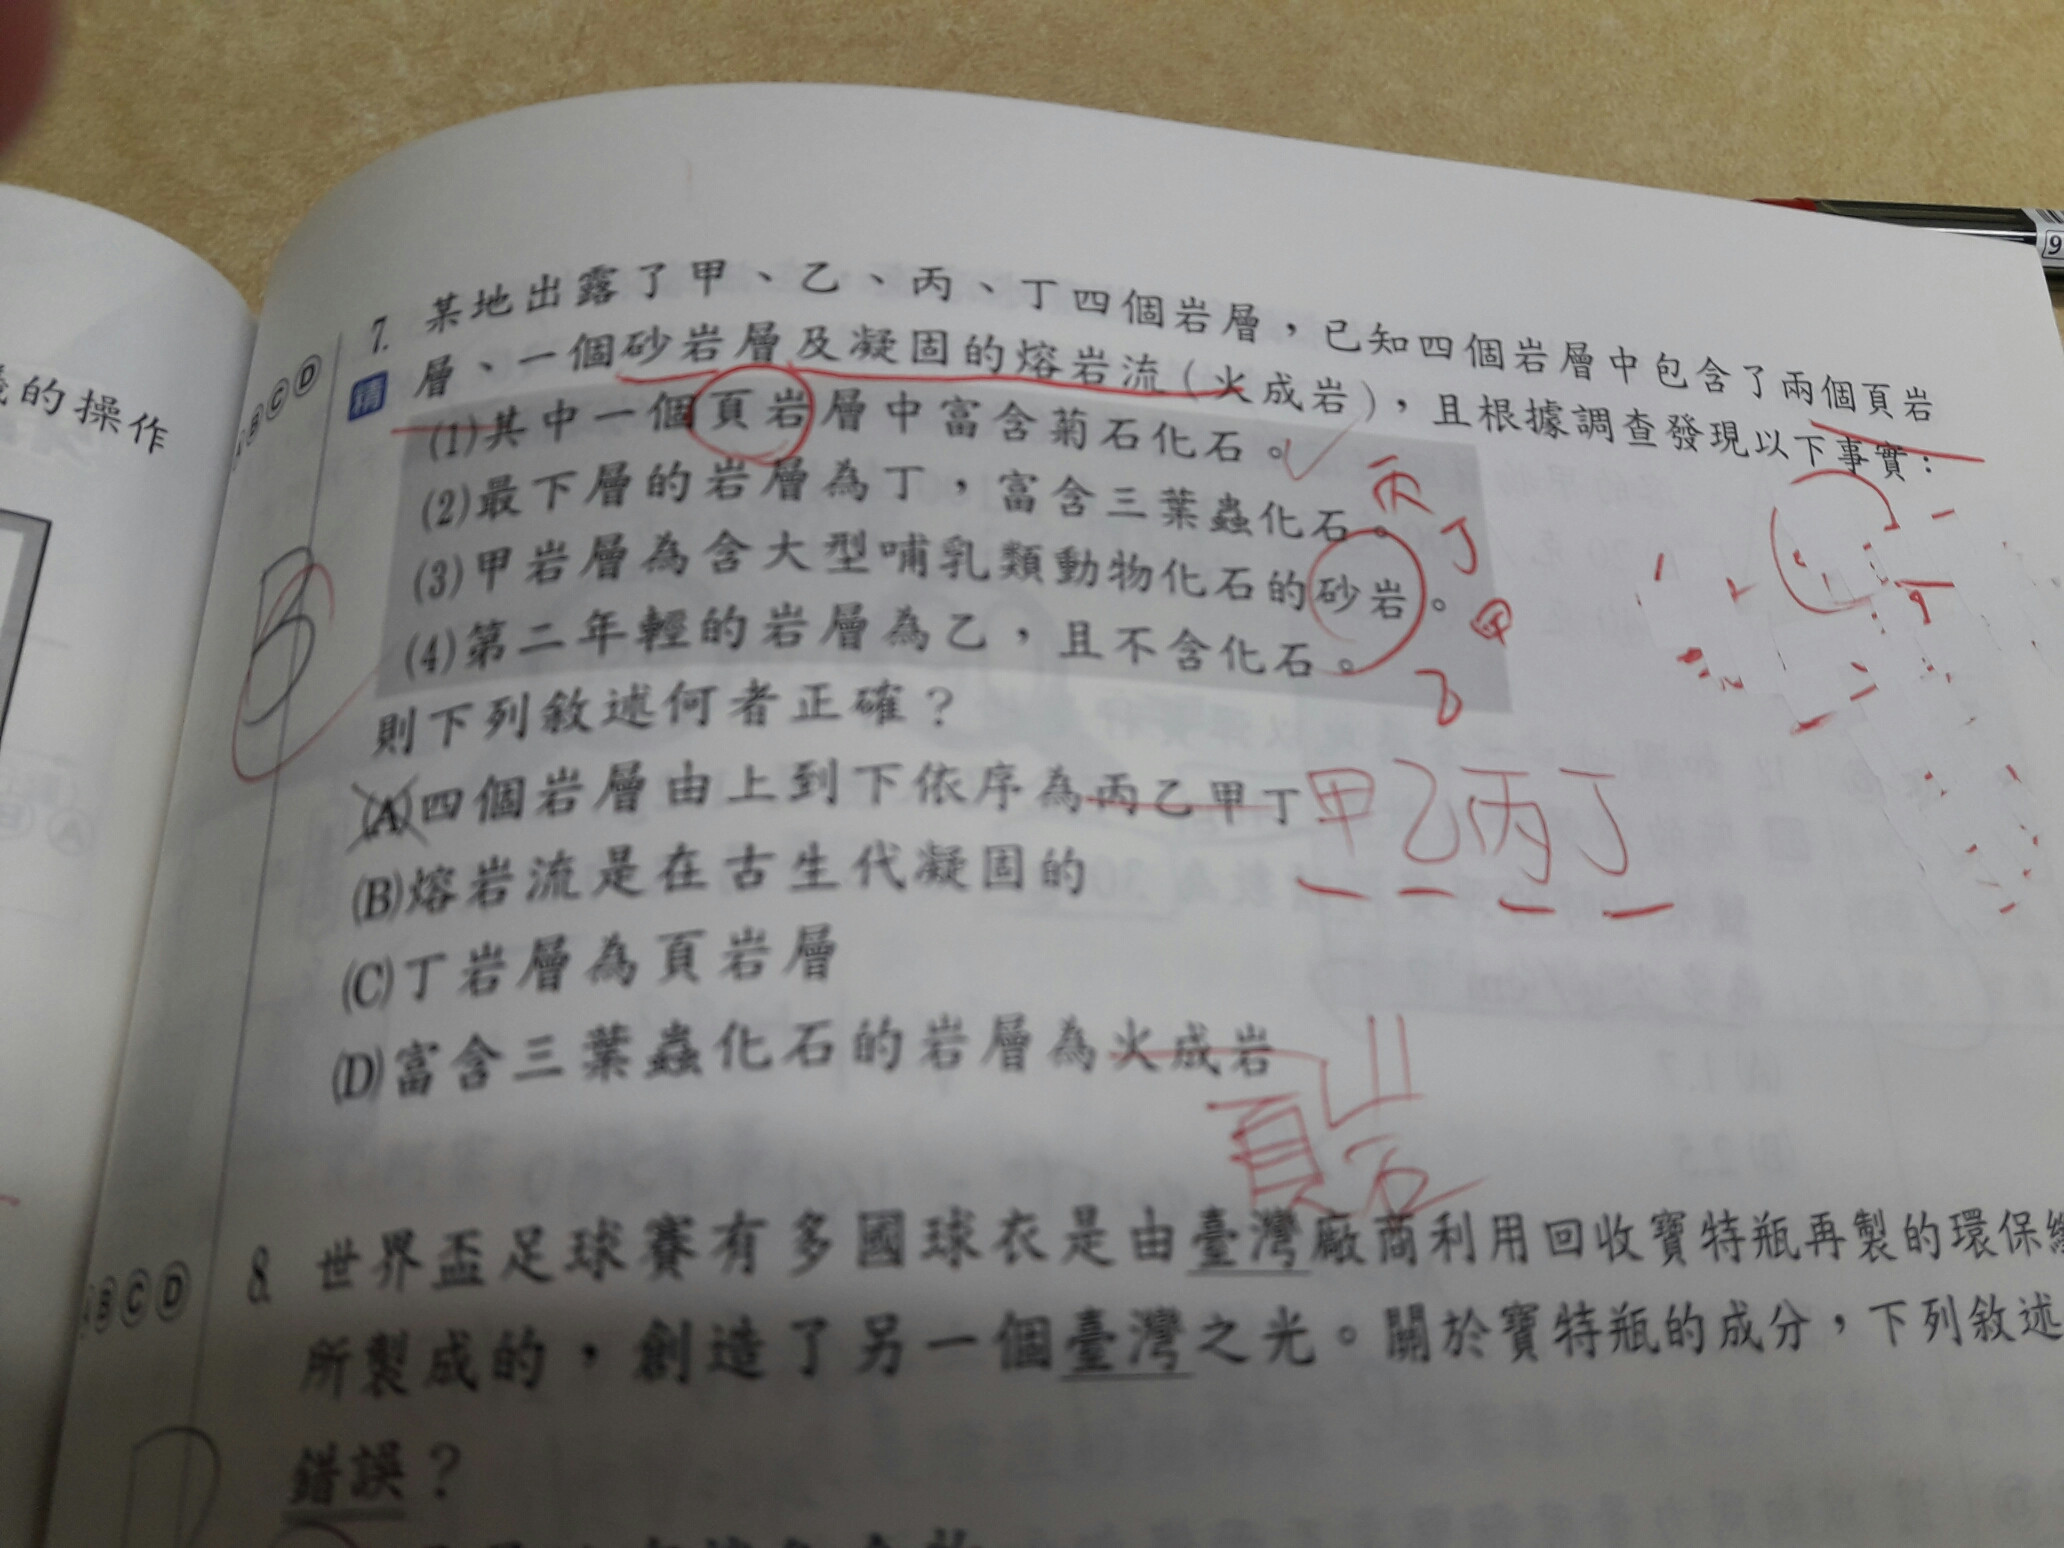 義的操作
ⒷⒸⒹ
7. 某地出露了甲、乙、丙、丁四個岩層，已知四個岩層中包含了兩個頁岩
精 層、一個砂岩層及凝固的熔岩流(火成岩)，且根據調查發現以下事實：
(1)其中一個頁岩層中富含菊石化石。
丙
(2)最下層的岩層為丁，富含三葉蟲化石。
丁
(3)甲岩層為含大型哺乳類動物化石的砂岩。
甲
(4)第二年輕的岩層為乙，且不含化石。
乙
B
則下列敘述何者正確？
(A)四個岩層由上到下依序為丙乙甲丁
甲乙丙丁
(B)熔岩流是在古生代凝固的
(C)丁岩層為頁岩層
(D)富含三葉蟲化石的岩層為火成岩
頁岩
ⒷⒸⒹ
8. 世界盃足球賽有多國球衣是由臺灣廠商利用回收寶特瓶再製的環保
所製成的，創造了另一個臺灣之光。關於寶特瓶的成分，下列敘述
錯誤？